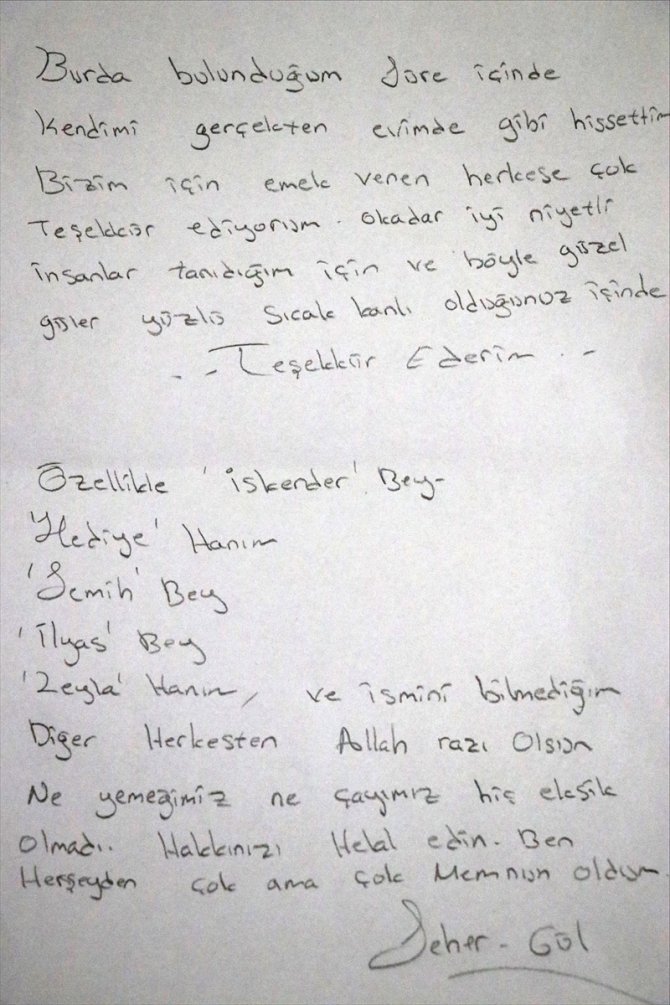 Burda bulunduğum süre içinde
Kendimi gerçekten evimde gibi hissettim
Bizim için emek veren herkese çok
Teşekkür ediyorum. okadar iyi niyetli
insanlar tanıdığım için ve böyle güzel
güler yüzlü sıcak kanlı olduğunuz içinde
. - Teşekkür Ederim . -
Özellikle 'iskender' Bey-
'Hediye' Hanım
'Semih' Bey
'İlyas' Bey
'Zeyla' Hanım, ve ismini bilmediğim
Diğer Herkesten Allah razı Olsun
Ne yemeğimiz ne çayımız hiç eksik
Olmadı.. Hakkınızı Helal edin. Ben
Herşeyden çok ama çok Memnun oldum.
Seher - Gül